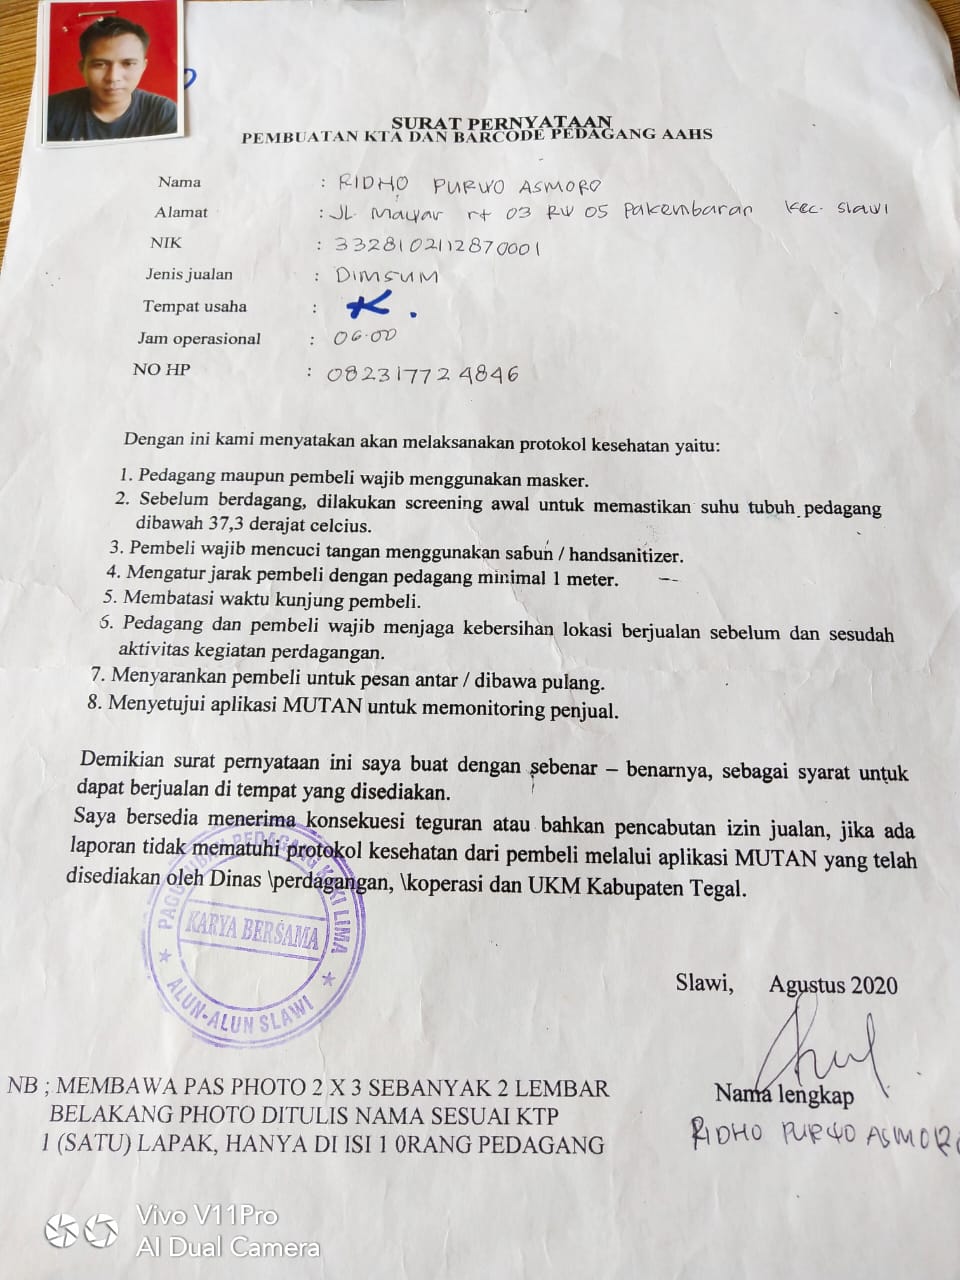 SURAT PERNYATAAN
PEMBUATAN KTA DAN BARCODE PEDAGANG AAHS
Nama : RIDHO PURWO ASMORO
Alamat : JL. Mawar rt 03 RW 05 Pakembaran Kec. Slawi
NIK : 3328102112870001
Jenis jualan : DIMSUM
Tempat usaha : K.
Jam operasional : 06.00
NO HP : 082317724846
Dengan ini kami menyatakan akan melaksanakan protokol kesehatan yaitu:
1. Pedagang maupun pembeli wajib menggunakan masker.
2. Sebelum berdagang, dilakukan screening awal untuk memastikan suhu tubuh pedagang
dibawah 37,3 derajat celcius.
3. Pembeli wajib mencuci tangan menggunakan sabun / handsanitizer.
4. Mengatur jarak pembeli dengan pedagang minimal 1 meter.
5. Membatasi waktu kunjung pembeli.
6. Pedagang dan pembeli wajib menjaga kebersihan lokasi berjualan sebelum dan sesudah
aktivitas kegiatan perdagangan.
7. Menyarankan pembeli untuk pesan antar / dibawa pulang.
8. Menyetujui aplikasi MUTAN untuk memonitoring penjual.
Demikian surat pernyataan ini saya buat dengan sebenar – benarnya, sebagai syarat untuk
dapat berjualan di tempat yang disediakan.
Saya bersedia menerima konsekuesi teguran atau bahkan pencabutan izin jualan, jika ada
laporan tidak mematuhi protokol kesehatan dari pembeli melalui aplikasi MUTAN yang telah
disediakan oleh Dinas \perdagangan, \koperasi dan UKM Kabupaten Tegal.
PAGUYUBAN PEDAGANG KAKI LIMA
KARYA BERSAMA
ALUN-ALUN SLAWI
Slawi, Agustus 2020
Nama lengkap
RIDHO PURWO ASMORO
NB ; MEMBAWA PAS PHOTO 2 X 3 SEBANYAK 2 LEMBAR
BELAKANG PHOTO DITULIS NAMA SESUAI KTP
1 (SATU) LAPAK, HANYA DI ISI 1 0RANG PEDAGANG
Vivo V11Pro
AI Dual Camera